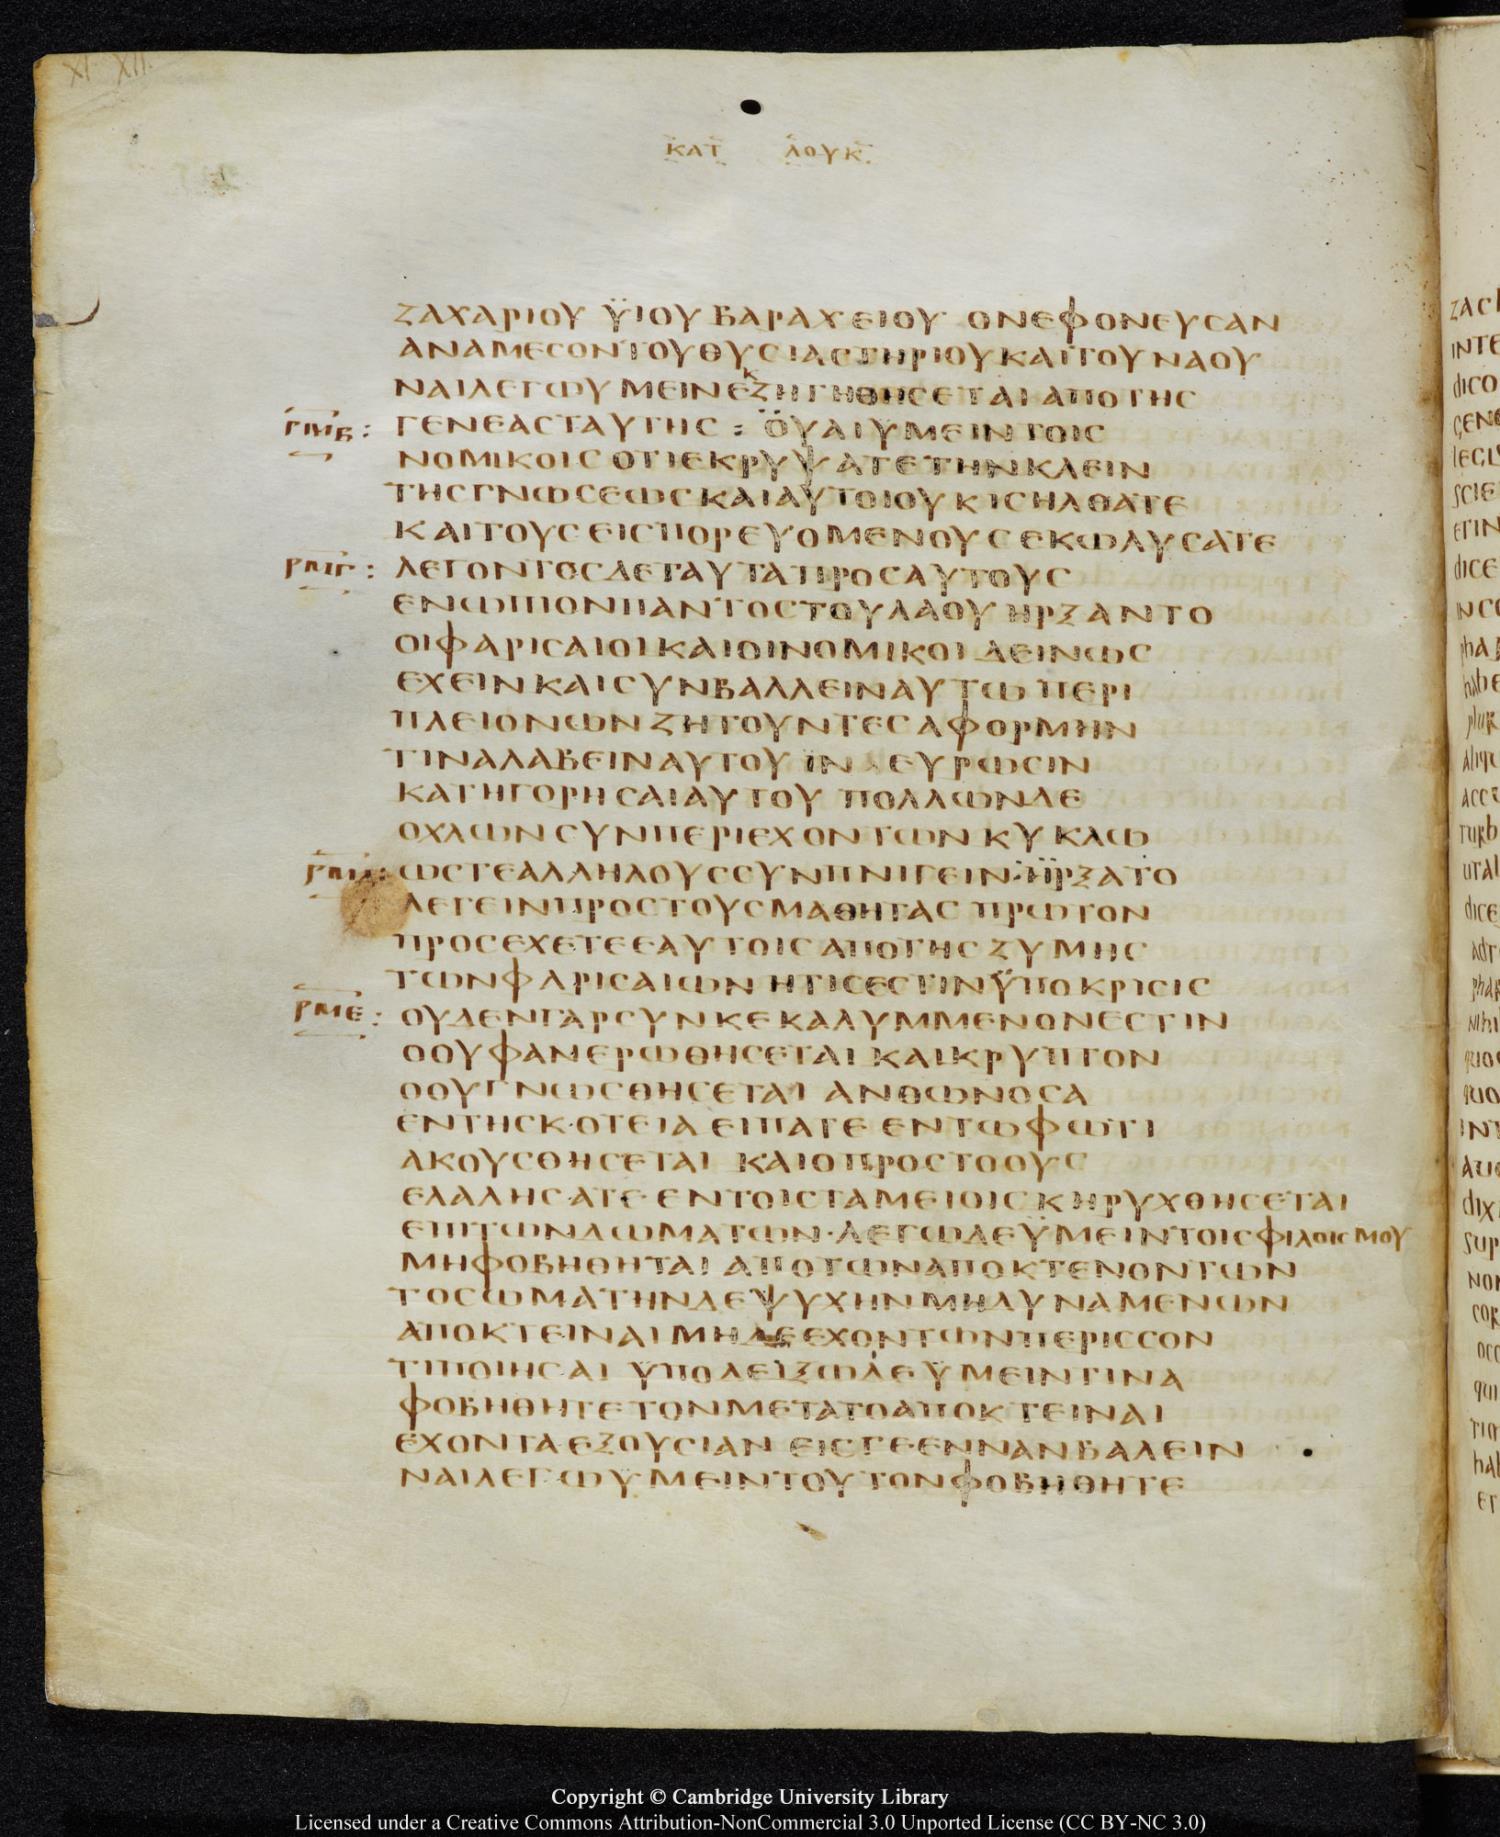 XI XII.
ΚΑΤ ΛΟΥΚ
ΖΑΧΑΡΙΟΥ ΫΙΟΥ ΒΑΡΑΧΕΙΟΥ ΟΝΕΦΟΝΕΥСΑΝ
ΑΝΑΜΕСΟΝΤΟΥΘΥСΙΑСΤΗΡΙΟΥΚΑΙΤΟΥΝΑΟΥ
ΝΑΙΛΕΓΩΥΜΕΙΝΕΚΖΗΤΗΘΗСΕΤΑΙΑΠΟΤΗС
ΓΕΝΕΑСΤΑΥΤΗС : ΟΥΑΙΫΜΕΙΝΤΟΙС
ΝΟΜΙΚΟΙСΟΤΙΕΚΡΥΨΑΤΕΤΗΝΚΛΕΙΝ
ΤΗСΓΝΩСΕΩСΚΑΙΑΥΤΟΙΟΥΚΙСΗΛΘΑΤΕ
ΚΑΙΤΟΥСΕΙСΠΟΡΕΥΟΜΕΝΟΥСΕΚΩΛΥСΑΤΕ
ΡΜΓ : ΛΕΓΟΝΤΟСΔΕΤΑΥΤΑΠΡΟСΑΥΤΟΥС
ΕΝΩΠΙΟΝΠΑΝΤΟСΤΟΥΛΑΟΥ ΗΡΞΑΝΤΟ
ΟΙΦΑΡΙСΑΙΟΙΚΑΙΟΙΝΟΜΙΚΟΙΔΕΙΝΩС
ΕΧΕΙΝΚΑΙСΥΝΒΑΛΛΕΙΝΑΥΤΩ ΠΕΡΙ
ΠΛΕΙΟΝΩΝΖΗΤΟΥΝΤΕСΑΦΟΡΜΗΝ
ΤΙΝΑΛΑΒΕΙΝΑΥΤΟΥ ΪΝΑΕΥΡΩСΙΝ
ΚΑΤΗΓΟΡΗСΑΙΑΥΤΟΥ ΠΟΛΛΩΝΔΕ
ΟΧΛΩΝСΥΝΠΕΡΙΕΧΟΝΤΩΝ ΚΥΚΛΩ
ΩСΤΕΑΛΛΗΛΟΥССΥΝΠΝΙΓΕΙΝ·ΗΡΞΑΤΟ
ΛΕΓΕΙΝΠΡΟСΤΟΥСΜΑΘΗΤΑС ΠΡΩΤΟΝ
ΠΡΟСΕΧΕΤΕΕΑΥΤΟΙСΑΠΟΤΗСΖΥΜΗС
ΤΩΝΦΑΡΙСΑΙΩΝ ΗΤΙСΕСΤΙΝΫΠΟΚΡΙСΙС
ΡΜΕ : ΟΥΔΕΝΓΑΡСΥΝΚΕΚΑΛΥΜΜΕΝΟΝΕСΤΙΝ
ΟΟΥΦΑΝΕΡΩΘΗСΕΤΑΙ ΚΑΙΚΡΥΠΤΟΝ
ΟΟΥΓΝΩСΘΗСΕΤΑΙ ΑΝΘΩΝΟСΑ
ΕΝΤΗСΚ·ΟΤΕΙΑ ΕΙΠΑΤΕ ΕΝΤΩΦΩΤΙ
ΑΚΟΥСΘΗСΕΤΑΙ ΚΑΙΟΠΡΟСΤΟΟΥС
ΕΛΑΛΗСΑΤΕ ΕΝΤΟΙСΤΑΜΕΙΟΙСΚΗΡΥΧΘΗСΕΤΑΙ
ΕΠΙΤΩΝΔΩΜΑΤΩΝ·ΛΕΓΩΔΕΫΜΕΙΝΤΟΙСΦΙΛΟΙСΜΟΥ
ΜΗΦΟΒΗΘΗΤΑΙ ΑΠΟΤΩΝΑΠΟΚΤΕΝΟΝΤΩΝ
ΤΟСΩΜΑΤΗΝΔΕΨΥΧΗΝΜΗΔΥΝΑΜΕΝΩΝ
ΑΠΟΚΤΕΙΝΑΙΜΗΔΕΕΧΟΝΤΩΝΠΕΡΙССΟΝ
ΤΙΠΟΙΗСΑΙ ΫΠΟΔΕΙΞΩΔΕΫΜΕΙΝΤΙΝΑ
ΦΟΒΗΘΗΤΕΤΟΝΜΕΤΑΤΟΑΠΟΚΤΕΙΝΑΙ
ΕΧΟΝΤΑΕΞΟΥСΙΑΝ ΕΙСΓΕΕΝΝΑΝΒΑΛΕΙΝ
ΝΑΙΛΕΓΩΫΜΕΙΝΤΟΥΤΟΝΦΟΒΗΘΗΤΕ
Copyright © Cambridge University Library
Licensed under a Creative Commons Attribution-NonCommercial 3.0 Unported License (CC BY-NC 3.0)